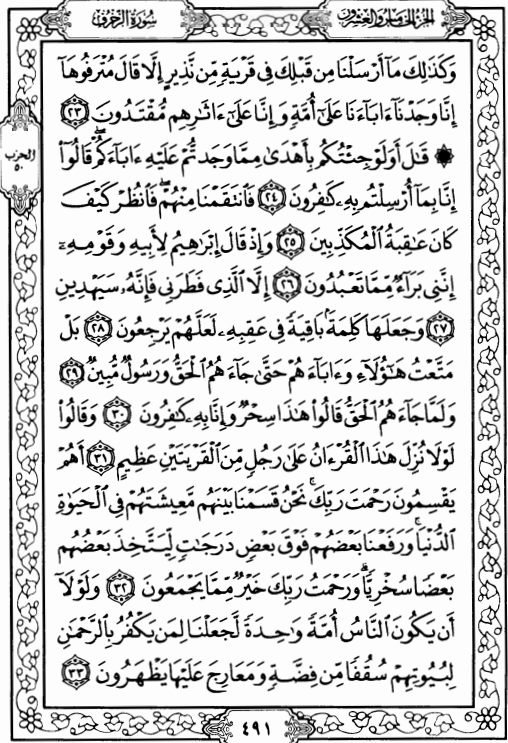 سُورَةُ الزُّخْرُفِ
الجزء الخامس والعشرون
وَكَذَٰلِكَ مَآ أَرْسَلْنَا مِن قَبْلِكَ فِي قَرْيَةٍ مِّن نَّذِيرٍ إِلَّا قَالَ مُتْرَفُوهَآ
إِنَّا وَجَدْنَآ ءَابَآءَنَا عَلَىٰٓ أُمَّةٍ وَإِنَّا عَلَىٰٓ ءَاثَٰرِهِم مُّقْتَدُونَ ٢٣
۞ قَٰلَ أَوَلَوْ جِئْتُكُم بِأَهْدَىٰ مِمَّا وَجَدتُّمْ عَلَيْهِ ءَابَآءَكُمْ ۖ قَالُوٓا۟
إِنَّا بِمَآ أُرْسِلْتُم بِهِۦ كَٰفِرُونَ ٢٤ فَٱنتَقَمْنَا مِنْهُمْ ۖ فَٱنظُرْ كَيْفَ
كَانَ عَٰقِبَةُ ٱلْمُكَذِّبِينَ ٢٥ وَإِذْ قَالَ إِبْرَٰهِيمُ لِأَبِيهِ وَقَوْمِهِۦٓ
إِنَّنِي بَرَآءٌ مِّمَّا تَعْبُدُونَ ٢٦ إِلَّا ٱلَّذِي فَطَرَنِي فَإِنَّهُۥ سَيَهْدِينِ
٢٧ وَجَعَلَهَا كَلِمَةًۢ بَاقِيَةً فِي عَقِبِهِۦ لَعَلَّهُمْ يَرْجِعُونَ ٢٨ بَلْ
مَتَّعْتُ هَٰٓؤُلَآءِ وَءَابَآءَهُمْ حَتَّىٰ جَآءَهُمُ ٱلْحَقُّ وَرَسُولٌ مُّبِينٌ ٢٩
وَلَمَّا جَآءَهُمُ ٱلْحَقُّ قَالُوا۟ هَٰذَا سِحْرٌ وَإِنَّا بِهِۦ كَٰفِرُونَ ٣٠ وَقَالُوا۟
لَوْلَا نُزِّلَ هَٰذَا ٱلْقُرْءَانُ عَلَىٰ رَجُلٍ مِّنَ ٱلْقَرْيَتَيْنِ عَظِيمٍ ٣١ أَهُمْ
يَقْسِمُونَ رَحْمَتَ رَبِّكَ ۚ نَحْنُ قَسَمْنَا بَيْنَهُم مَّعِيشَتَهُمْ فِي ٱلْحَيَوٰةِ
ٱلدُّنْيَا ۚ وَرَفَعْنَا بَعْضَهُمْ فَوْقَ بَعْضٍ دَرَجَٰتٍ لِّيَتَّخِذَ بَعْضُهُم
بَعْضًا سُخْرِيًّا ۗ وَرَحْمَتُ رَبِّكَ خَيْرٌ مِّمَّا يَجْمَعُونَ ٣٢ وَلَوْلَآ
أَن يَكُونَ ٱلنَّاسُ أُمَّةً وَٰحِدَةً لَّجَعَلْنَا لِمَن يَكْفُرُ بِٱلرَّحْمَٰنِ
لِبُيُوتِهِمْ سُقُفًا مِّن فِضَّةٍ وَمَعَارِجَ عَلَيْهَا يَظْهَرُونَ ٣٣
الحزب
٥٠
٤٩١